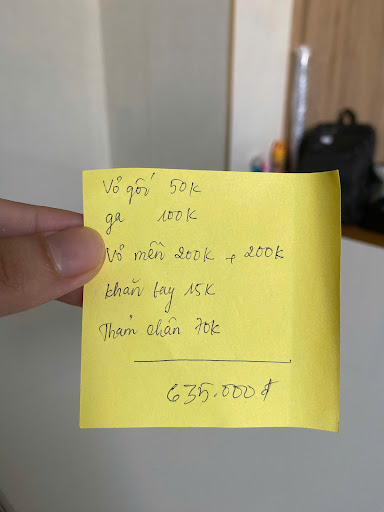 Vỏ gối 50K
ga 100K
Vỏ mền 200K + 200K
khăn tay 15K
Thảm chân 70K
635.000đ